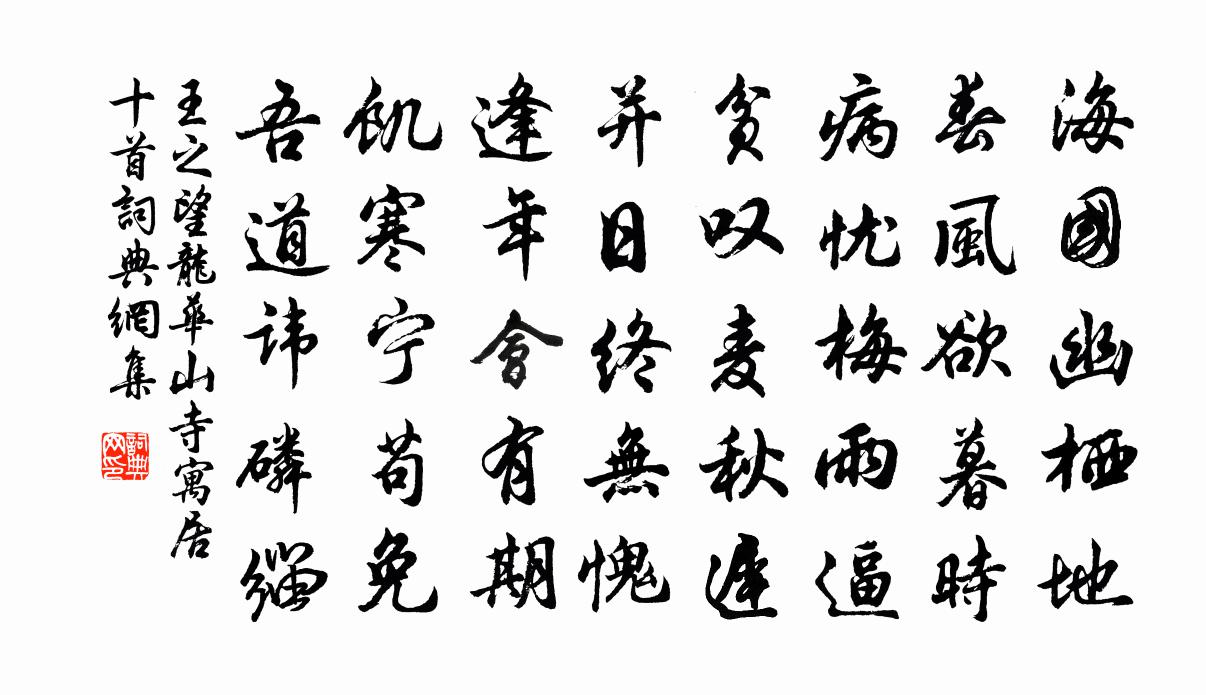 海國幽栖地
春風欲暮時
病忧梅雨逼
贫叹麦秋遲
并日终無愧
逢年會有期
飢寒宁苟免
吾道讳磷缁
王之望龍華山寺寓居
十首詞典網集
詞典网印